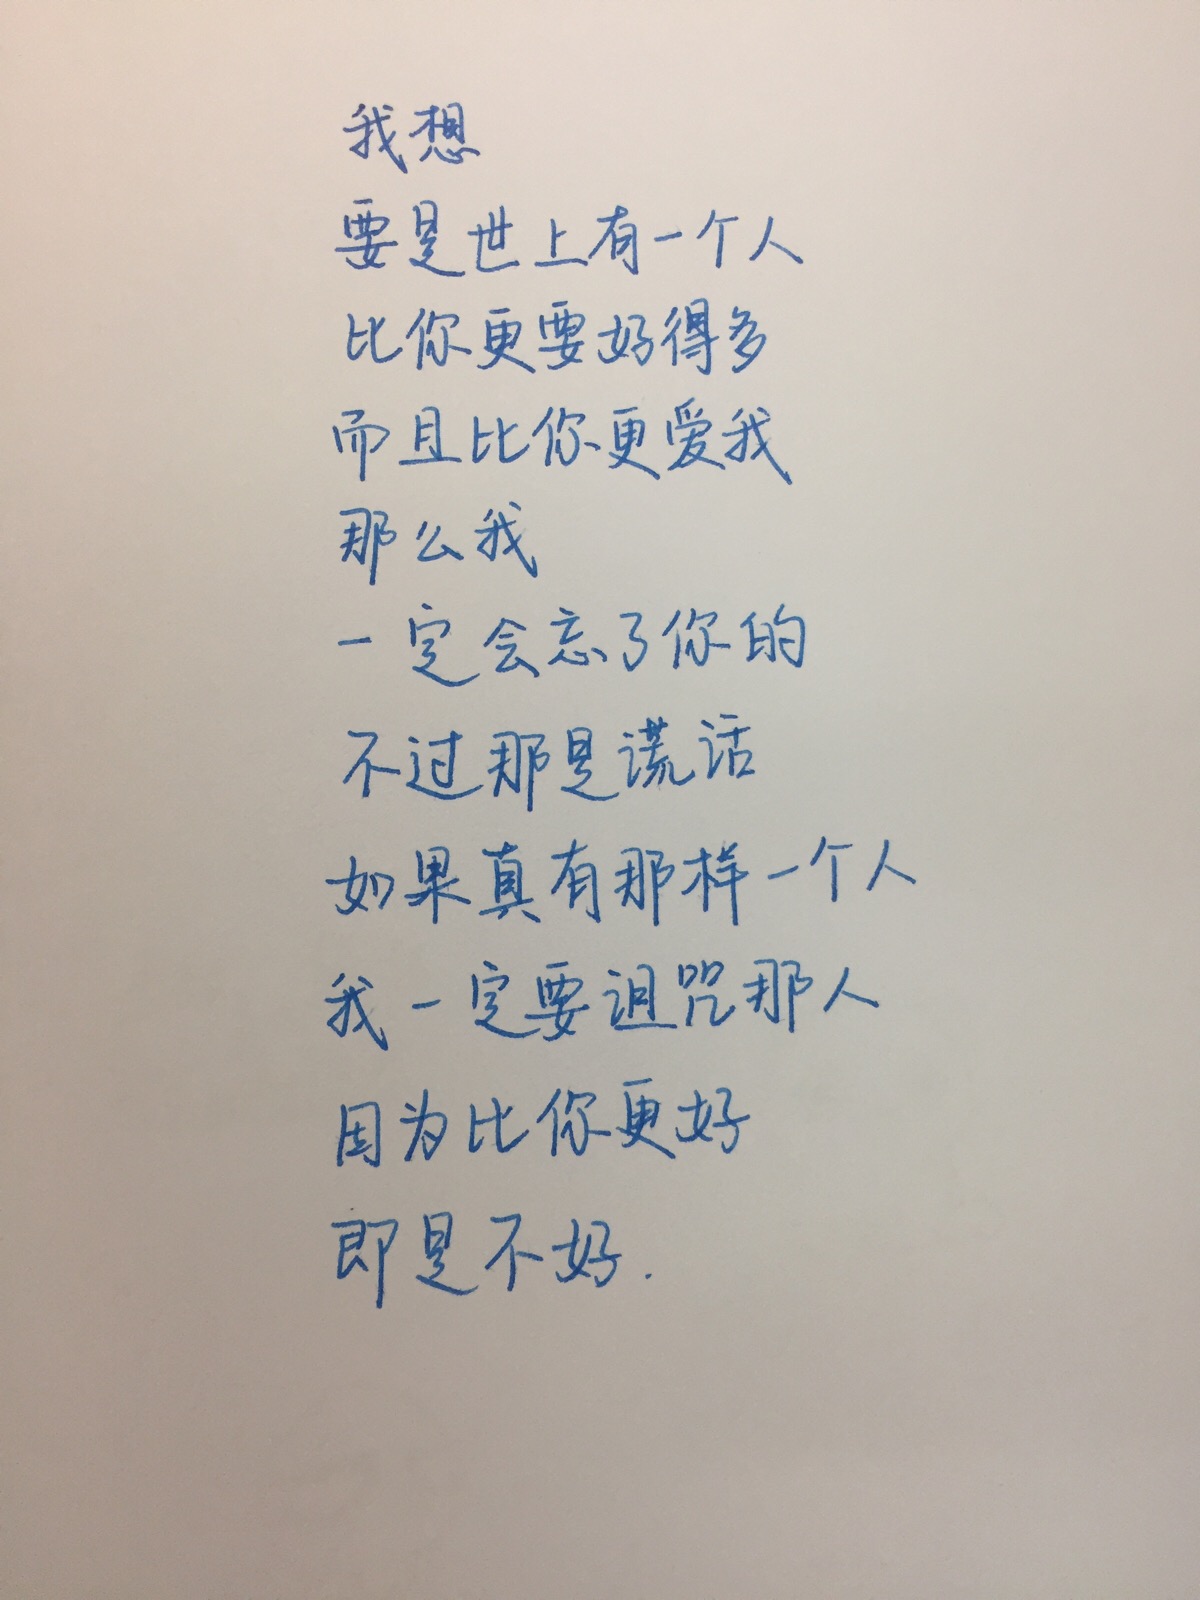 我想
要是世上有一个人
比你更要好得多
而且比你更爱我
那么我
一定会忘了你的
不过那是谎话
如果真有那样一个人
我一定要诅咒那人
因为比你更好
即是不好.